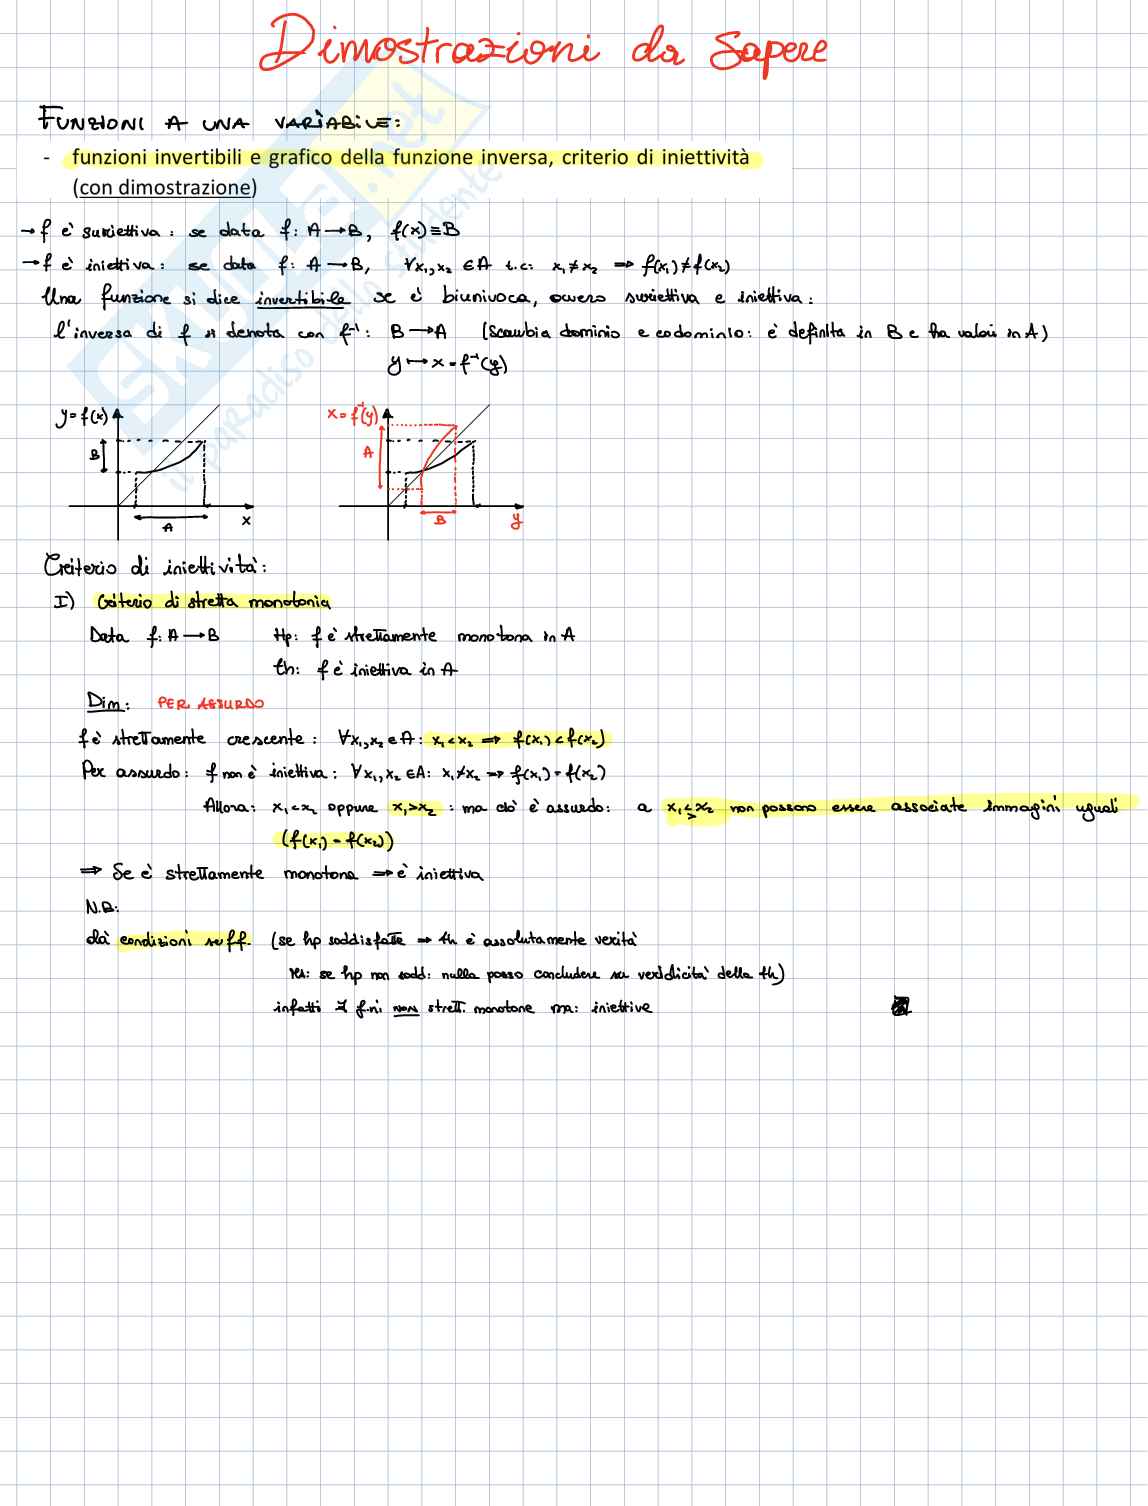 Dimostrazioni da Sapere
FUNZIONI A UNA VARIABILE:
- funzioni invertibili e grafico della funzione inversa, criterio di iniettività
(con dimostrazione)
→ f è suriettiva: se data f: A → B, f(x) ≡ B
→ f è iniettiva: se data f: A → B, ∀x₁,x₂ ∈ A t.c: x₁ ≠ x₂ ⇒ f(x₁) ≠ f(x₂)
Una funzione si dice invertibile se è biunivoca, ovvero suriettiva e iniettiva:
l'inversa di f si denota con f⁻¹: B → A (scambia dominio e codominio: è definita in B e ha valori in A)
y ↦ x = f⁻¹(y)
y = f(x)
B
A
x
x = f⁻¹(y)
A
B
y
Criterio di iniettività:
I) Criterio di stretta monotonia
Data f: A → B Hp: f è strettamente monotona in A
th: f è iniettiva in A
Dim: PER ASSURDO
f è strettamente crescente: ∀x₁,x₂ ∈ A: x₁ < x₂ ⇒ f(x₁) < f(x₂)
Per assurdo: f non è iniettiva: ∀x₁,x₂ ∈ A: x₁ ≠ x₂ ⇒ f(x₁) = f(x₂)
Allora: x₁ < x₂ oppure x₁ > x₂ : ma ciò è assurdo: a x₁ ≶ x₂ non possono essere associate immagini uguali
(f(x₁) = f(x₂))
⇒ Se è strettamente monotona ⇒ è iniettiva
N.B:
dà condizioni suff. (se hp soddisfatte ⇒ th è assolutamente verità
se hp non sodd: nulla posso concludere su veridicità della th)
infatti ∃ f.ni NON strett. monotone ma: iniettive
SKUOLA.net
il paradiso dello studente